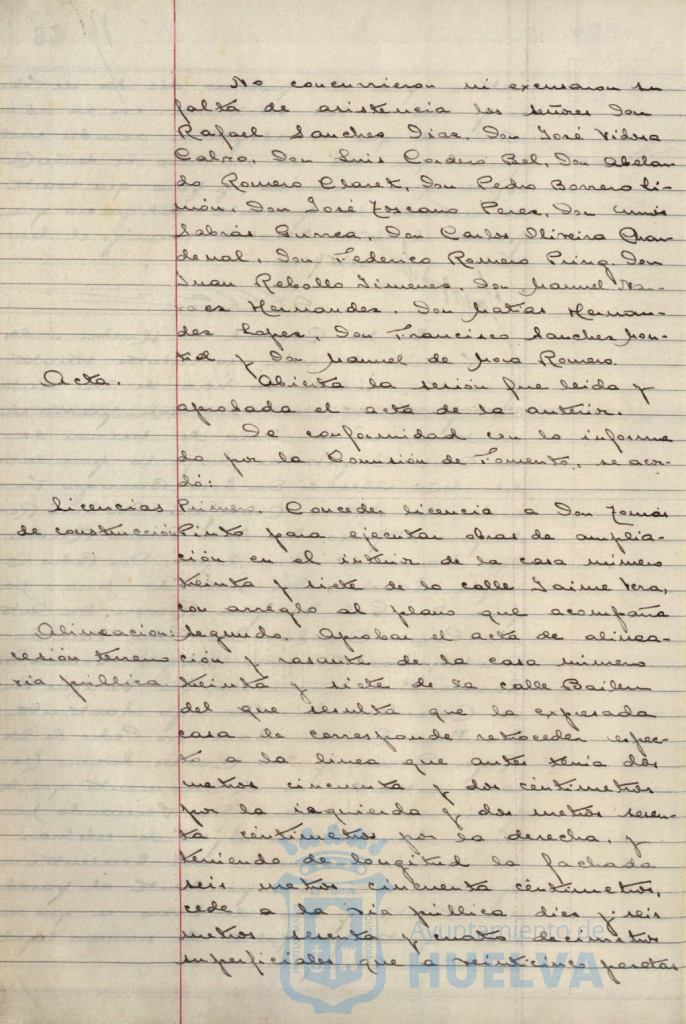 No concurrieron ni excusaron su
falta de asistencia los señores Don
Rafael Sanches Dias, Don José Vidosa
Calvo, Don Luis Cordero Bel, Don Abelar
do Romero Claret, Don Pedro Borrero Li-
món, Don José Toscano Peres, Don
Sabrás Gurrea, Don Carlos Oliveira Char
denal, Don Federico Romero Pring, Don
Juan Rebollo Jimenes, Don Manuel Na-
Hernandes, Don Matías Hernan-
des Lopes, Don Francisco Sanches Mon-
tiel y Don Manuel de Mora Romero.
Acta.
Abierta la sesión fue leida y
aprobada el acta de la anterior.
De conformidad con lo informa
do por la Comisión de Fomento, se acor-
dó:
Licencias
de construcción
Primero. Conceder licencia a Don Tomás
Pinto para ejecutar obras de amplia-
ción en el interior de la casa número
treinta y siete de la calle Jaime Vera,
con arreglo al plano que acompaña
Alineacion:
cesión terreno
via pública
Segundo. Aprobar el acta de alinea-
ción y rasante de la casa número
treinta y siete de la calle Bailen
del que resulta que la expresada
casa le corresponde retroceder espec-
to a la linea que antes tenia dos
metros cincuenta y dos céntimetros
por la izquierda y dos metros sesen-
ta céntimetros por la derecha, y
teniendo de longitud la fachada
seis metros cincuenta céntimetros,
cede a la via pública dies y seis
metros sesenta y cuatro decimetros
superficiales que a veinticinco pesetas
Ayuntamiento de
HUELVA